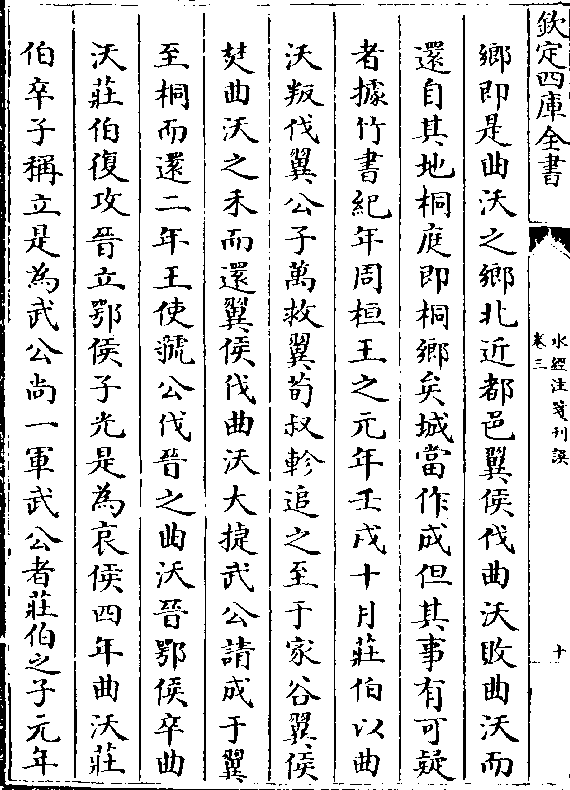 欽定四庫全書
水經注箋刊誤
卷三
十
鄉即是曲沃之鄉北近都邑翼侯伐曲沃敗曲沃而
還自其地桐庭即桐鄉矣城當作成但其事有可疑
者據竹書紀年周桓王之元年壬戌十月莊伯以曲
沃叛伐翼公子萬救翼荀叔軫追之至于家谷翼侯
焚曲沃之禾而還翼侯伐曲沃大捷武公請成于翼
至桐而還二年王使虢公伐晉之曲沃晉鄂侯卒曲
沃莊伯復攻晉立鄂侯子光是為哀侯四年曲沃莊
伯卒子稱立是為武公尚一軍武公者莊伯之子元年